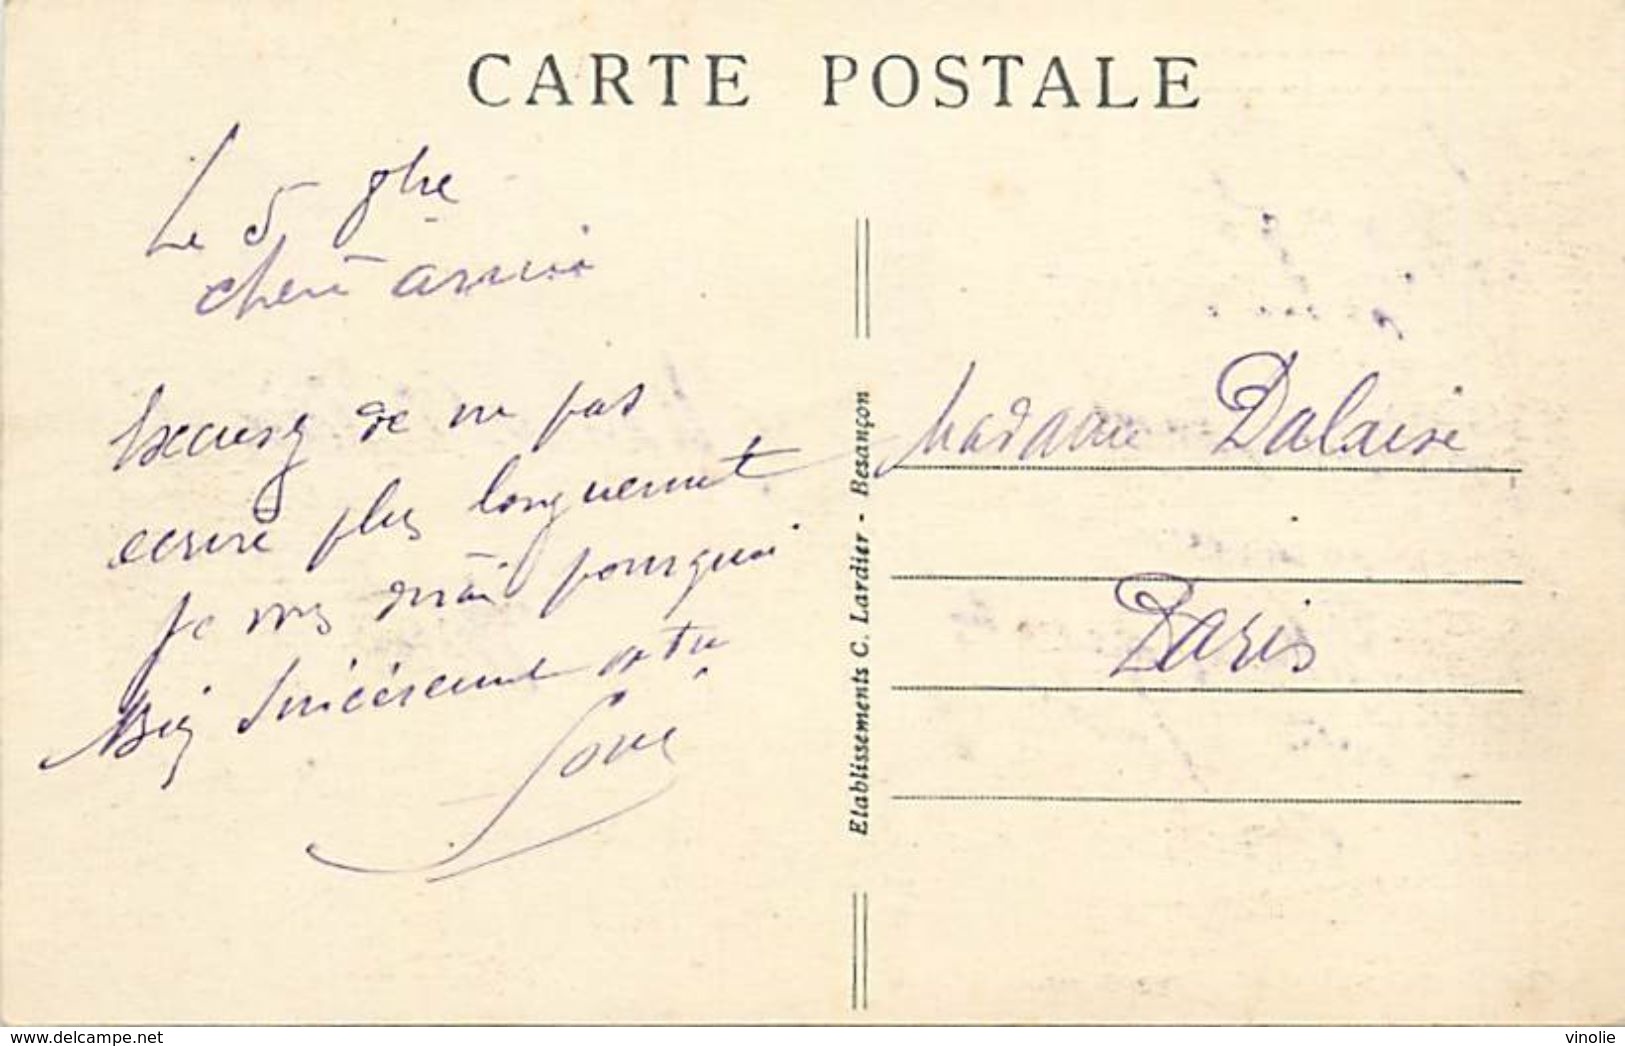 CARTE POSTALE
Le 5 9bre
chere amie
Excusez de ne pas
ecrire plus longuement
Je vous dirai pourquoi
Bien sincérement votre
Etablissements C. Lardier - Besançon
Madame Dalaise
Paris
www.delcampe.net
vinolie